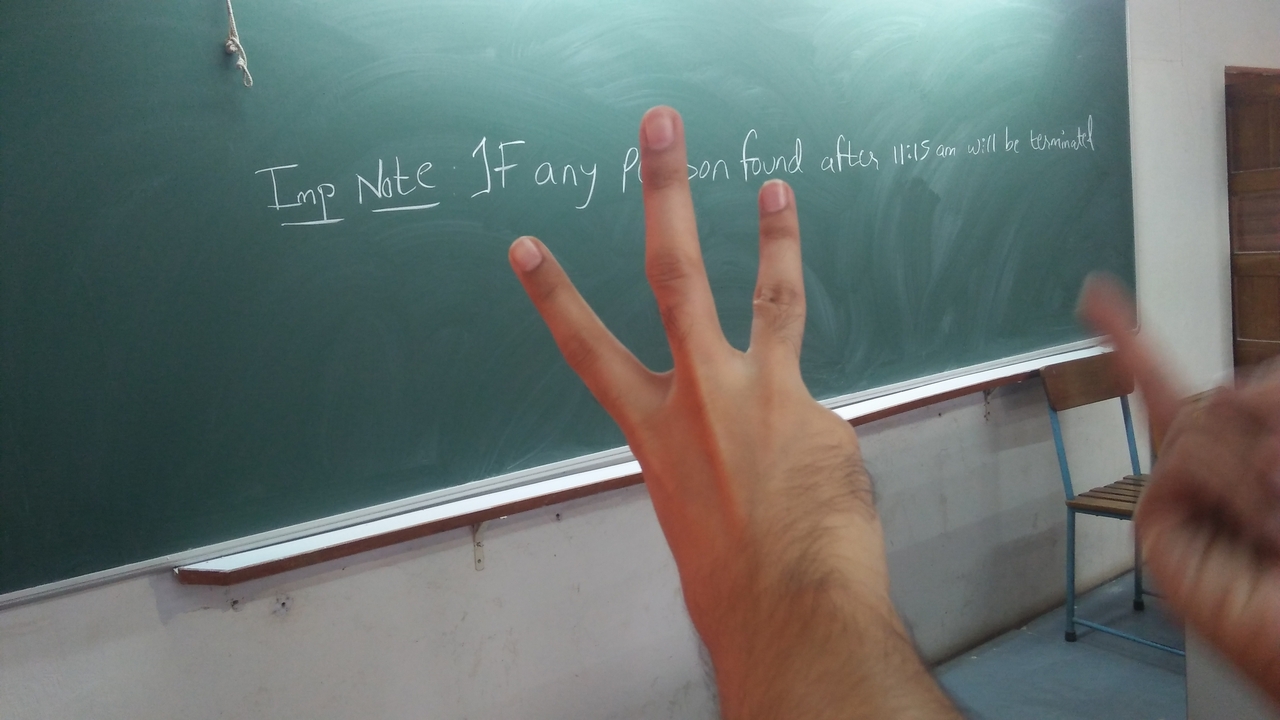 Imp Note : IF any person found after 11:15 am will be terminated